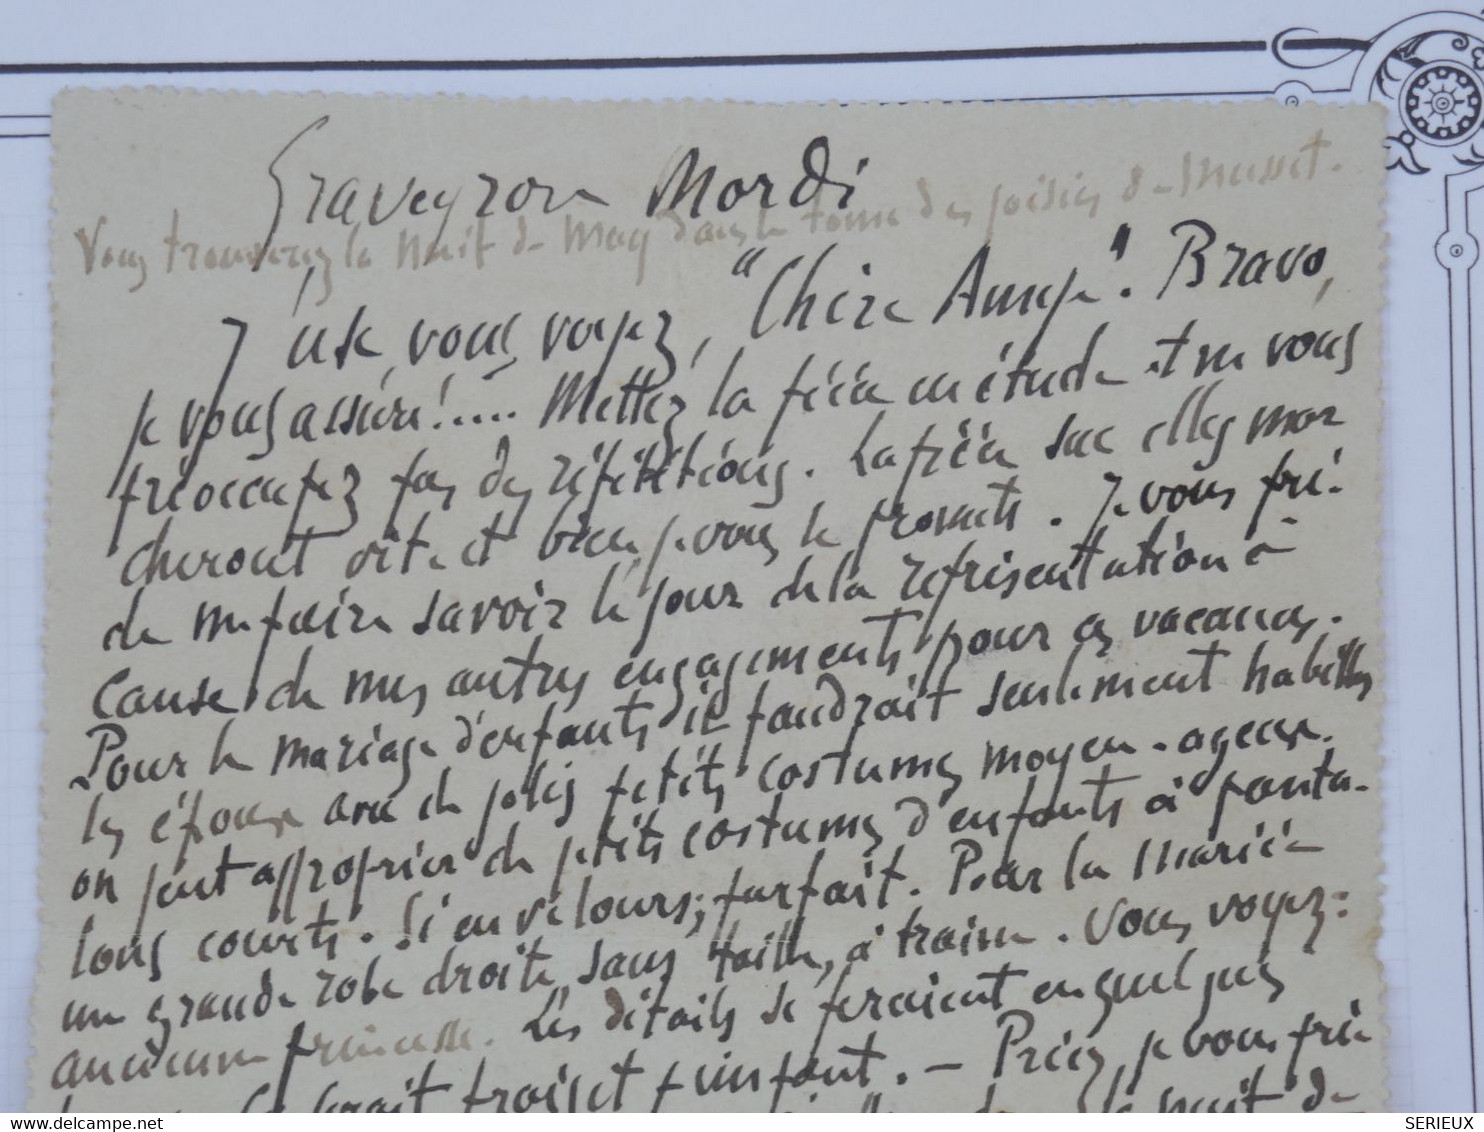 Graveyron Mardi
Vous trouverez la Nuit de May dans le tome des poésies de Musset.
J'use, vous voyez, "Chère Amye". Bravo,
je vous assure!.... Mettez la féée en étude et ne vous
préoccupez pas des répétitions. La féée sue elles mar
cheront vite et bien je vous le promets. Je vous prie
de me faire savoir le jour de la représentation à
cause de mes autres engagements pour ces vacances.
Pour le mariage d'enfants il faudrait seulement habiller
les époux avec de jolis petits costumes moyen-ageux.
on peut approprier de petits costumes d'enfants à panta-
lons courts. Si en velours; parfait. Pour la mariée
une grande robe droite, sans taille, à traine. Vous voyez:
ancienne princesse. Les détails se feraient en quelques
trois et p
un
font. — Priez, je vous prie
nuit de
SERIEUX